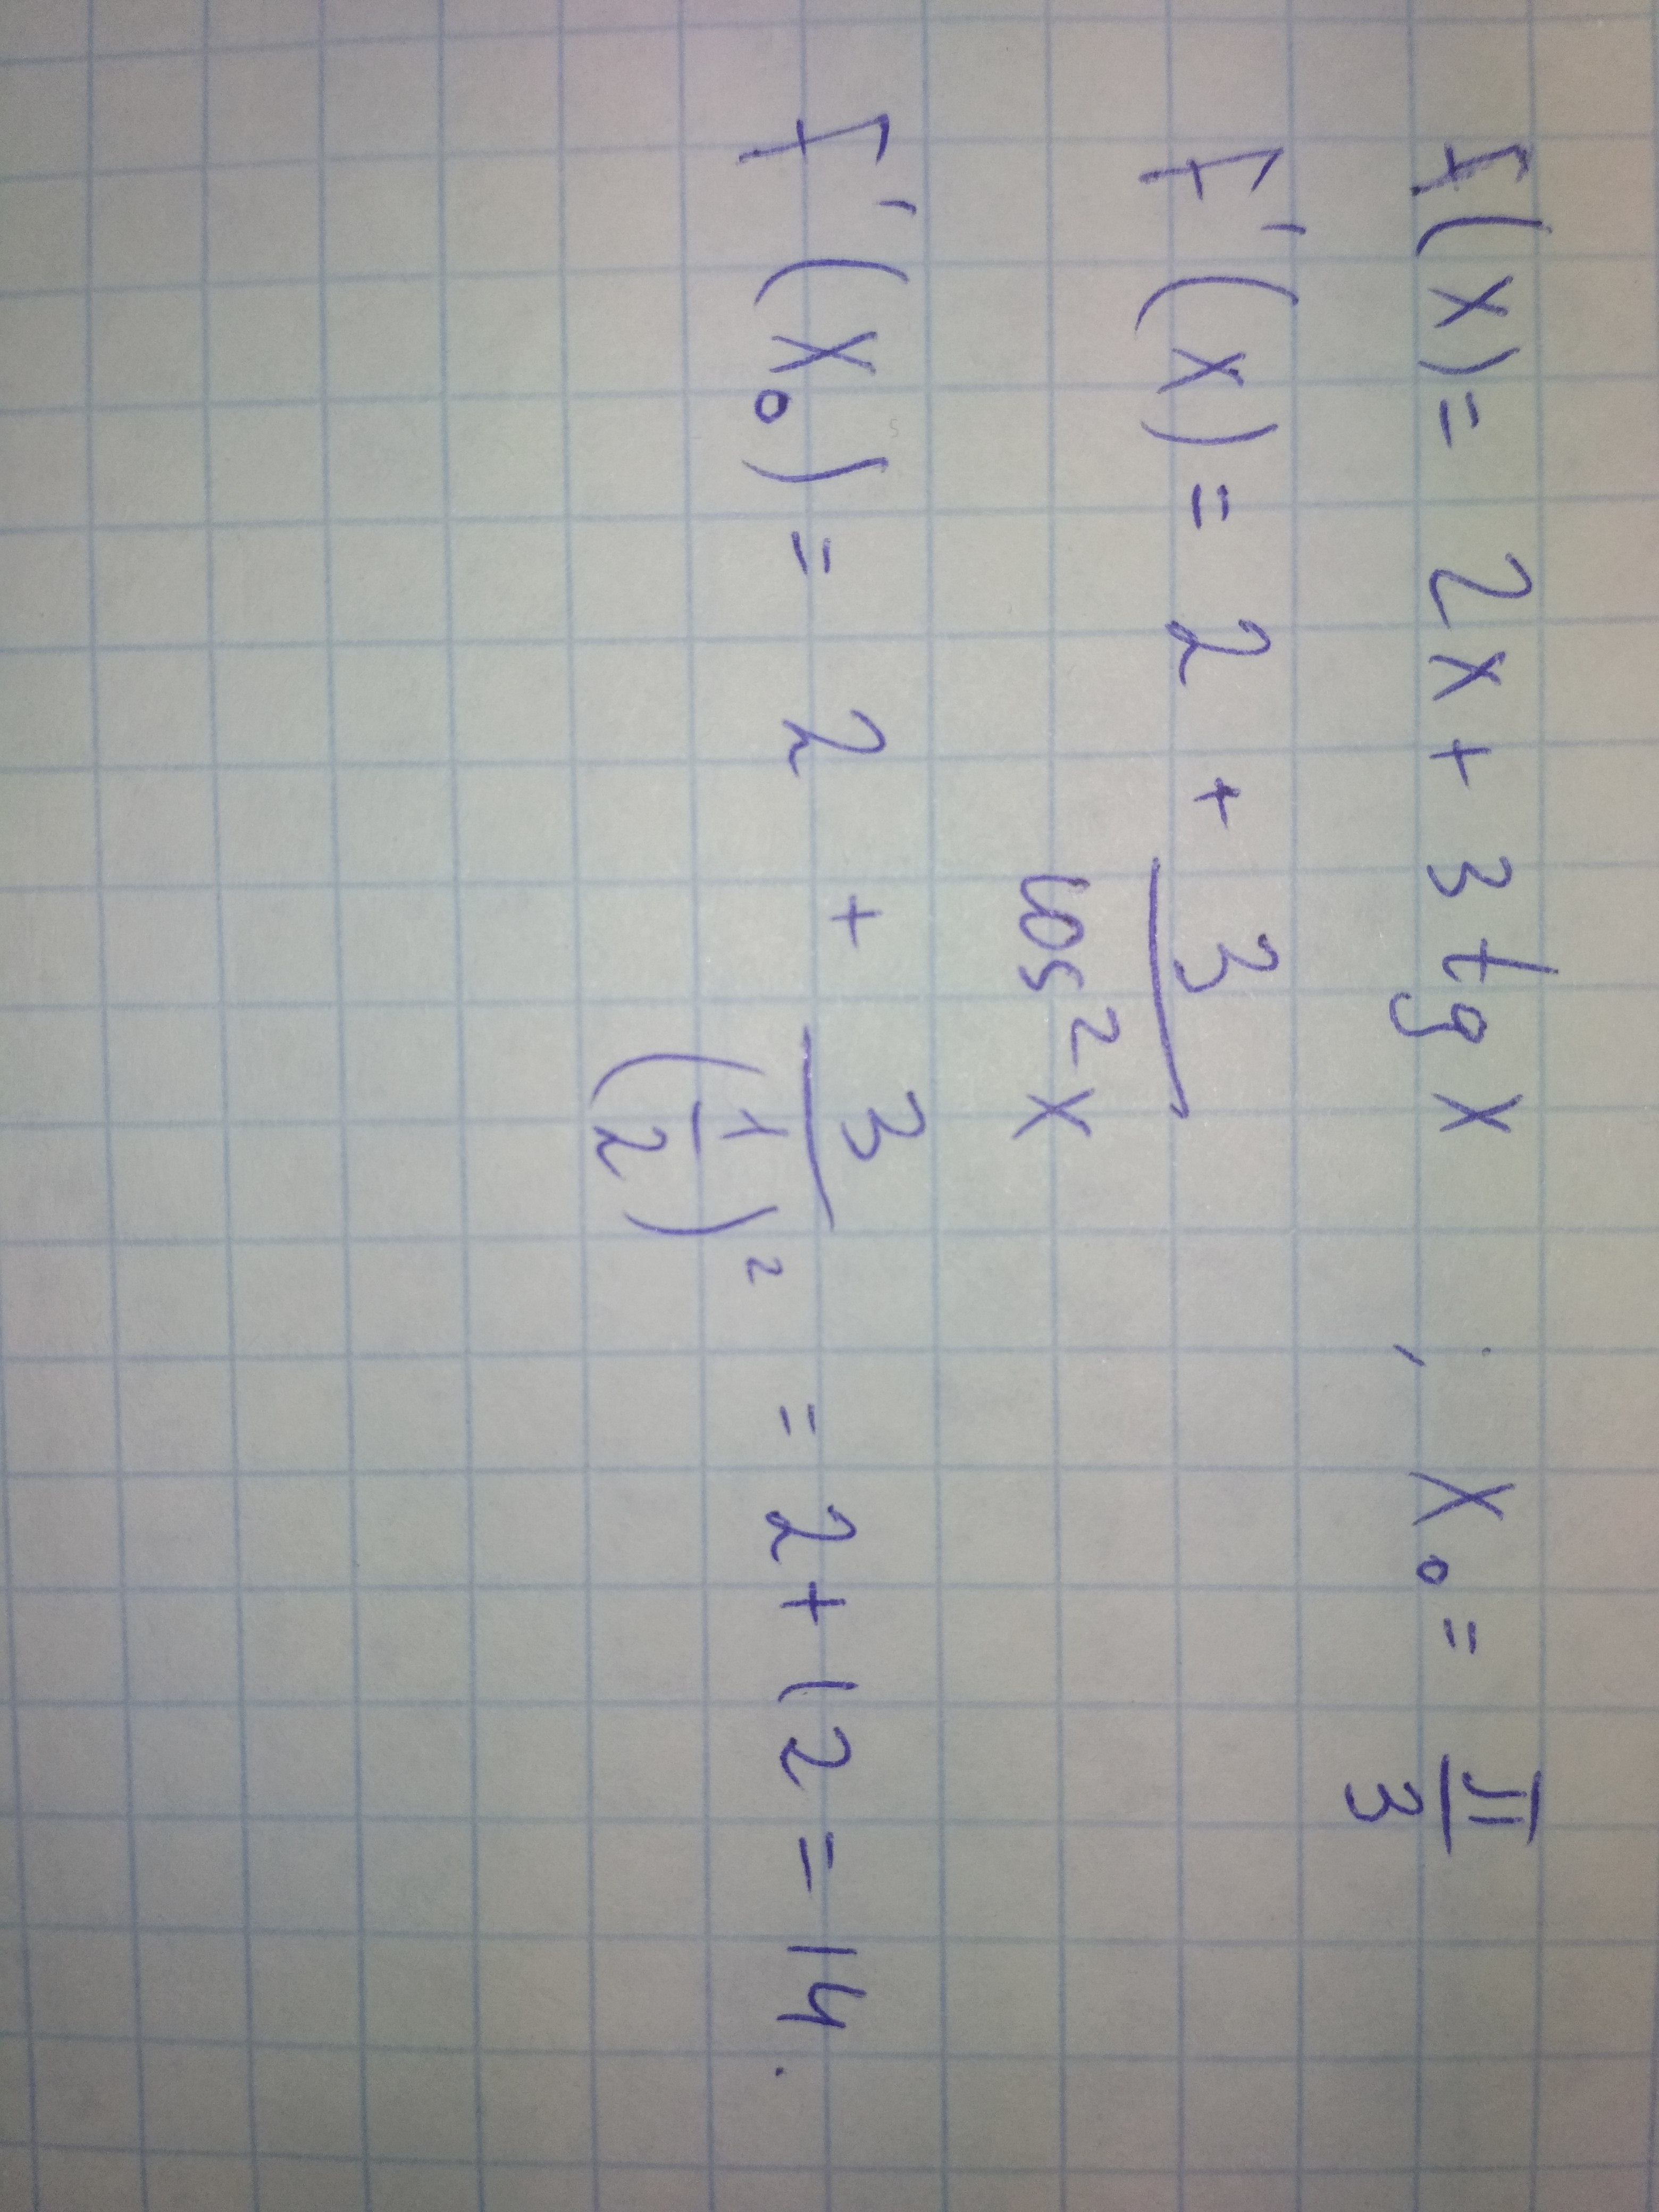 f(x) = 2x + 3 tg x ; x₀ = π/3
f'(x) = 2 + 3/cos²x
f'(x₀) = 2 + 3/(1/2)² = 2 + 12 = 14.